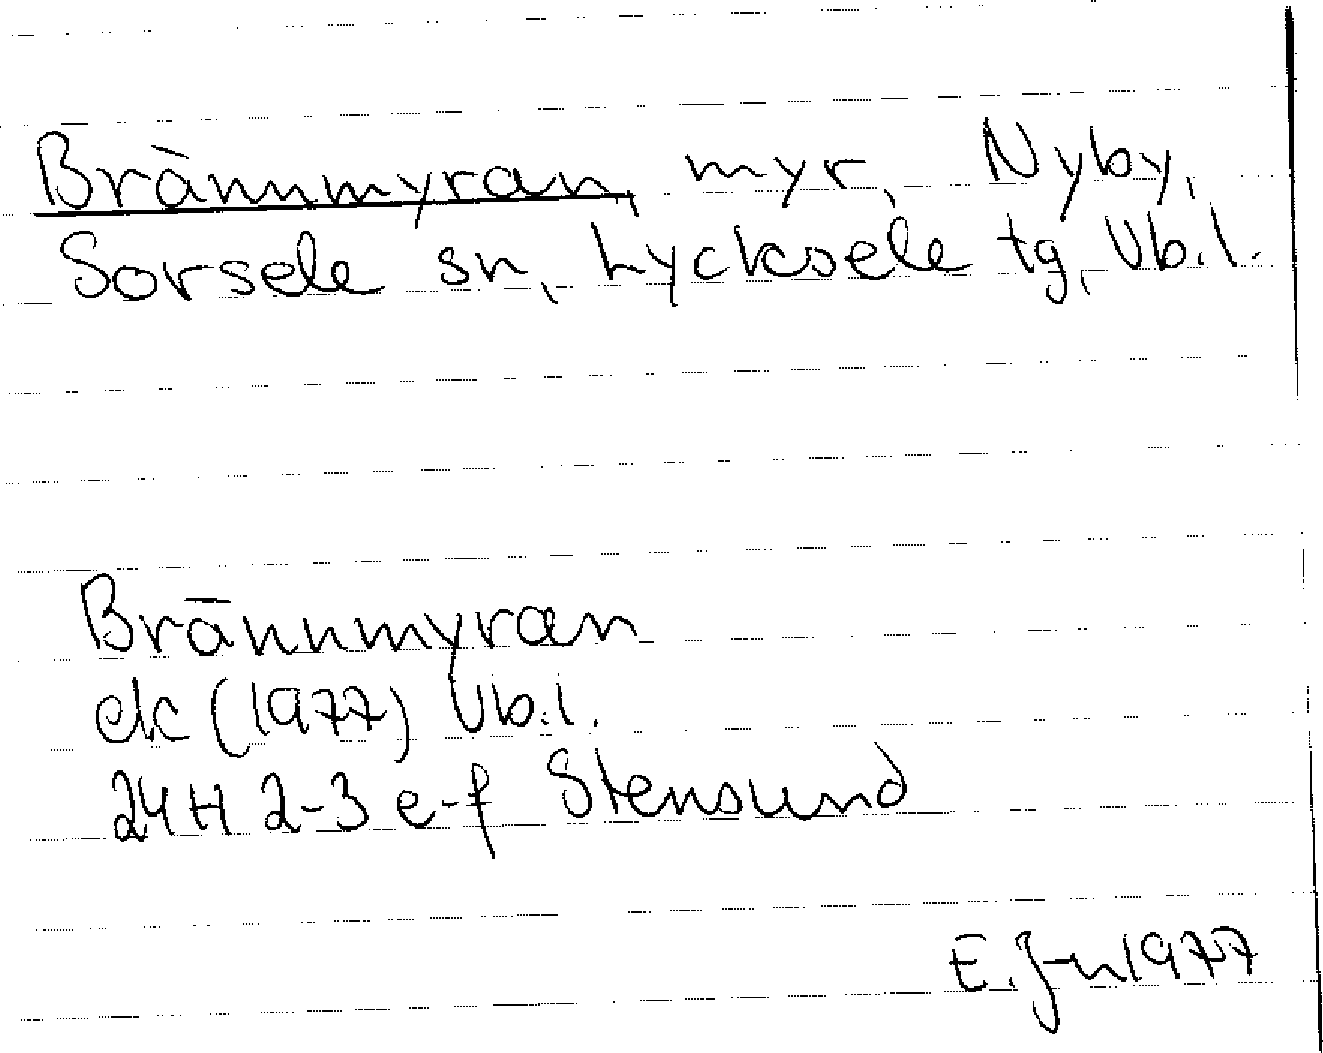 Brännmyran, myr, Nyby,
Sorsele sn, Lycksele tg, Vb.l.
Brännmyran
ek (1977) Vb.l.
24H 2-3 e-f Stensund
E. J-n 1977